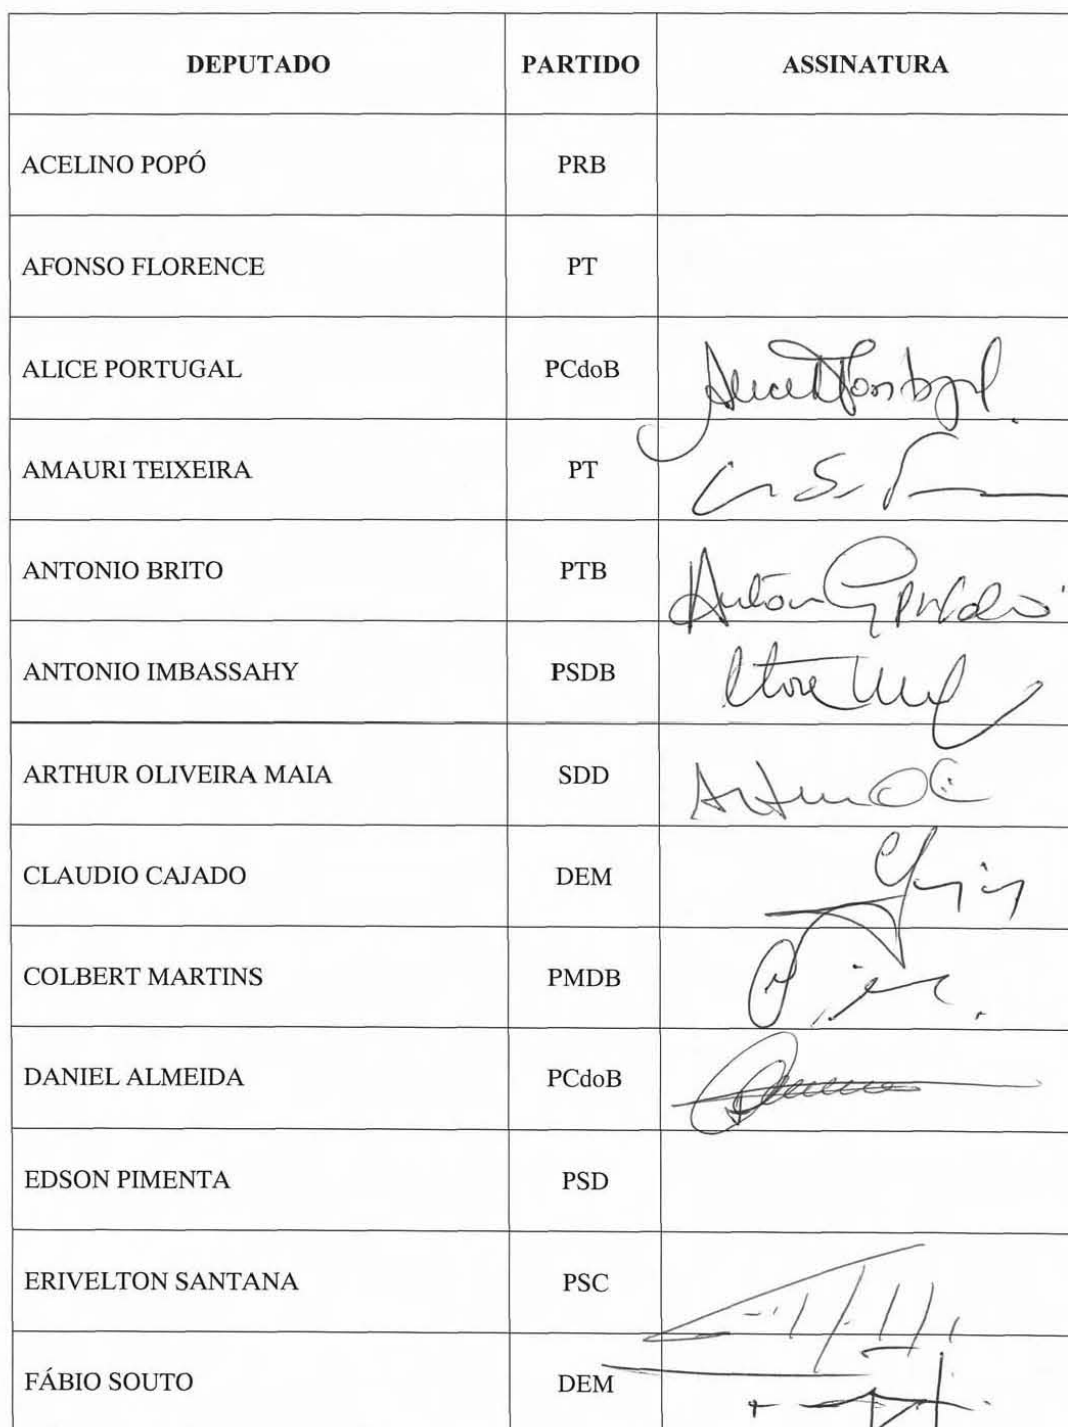 DEPUTADO PARTIDO ASSINATURA
ACELINO POPÓ PRB
AFONSO FLORENCE PT
ALICE PORTUGAL PCdoB
AMAURI TEIXEIRA PT
ANTONIO BRITO PTB
ANTONIO IMBASSAHY PSDB
ARTHUR OLIVEIRA MAIA SDD
CLAUDIO CAJADO DEM
COLBERT MARTINS PMDB
DANIEL ALMEIDA PCdoB
EDSON PIMENTA PSD
ERIVELTON SANTANA PSC
FÁBIO SOUTO DEM